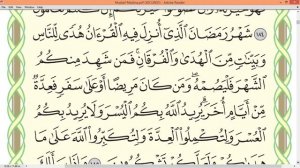 Mushaf Madina.pdf (SECURED) - Adobe Reader
١٨٤ شَهْرُ رَمَضَانَ ٱلَّذِىٓ أُنزِلَ فِيهِ ٱلْقُرْءَانُ هُدًى لِّلنَّاسِ
وَبَيِّنَٰتٍ مِّنَ ٱلْهُدَىٰ وَٱلْفُرْقَانِ فَمَن شَهِدَ مِنكُمُ
ٱلشَّهْرَ فَلْيَصُمْهُ وَمَن كَانَ مَرِيضًا أَوْ عَلَىٰ سَفَرٍ فَعِدَّةٌ
مِّنْ أَيَّامٍ أُخَرَ يُرِيدُ ٱللَّهُ بِكُمُ ٱلْيُسْرَ وَلَا يُرِيدُ بِكُمُ
ٱلْعُسْرَ وَلِتُكْمِلُوا۟ ٱلْعِدَّةَ وَلِتُكَبِّرُوا۟ ٱللَّهَ عَلَىٰ مَا